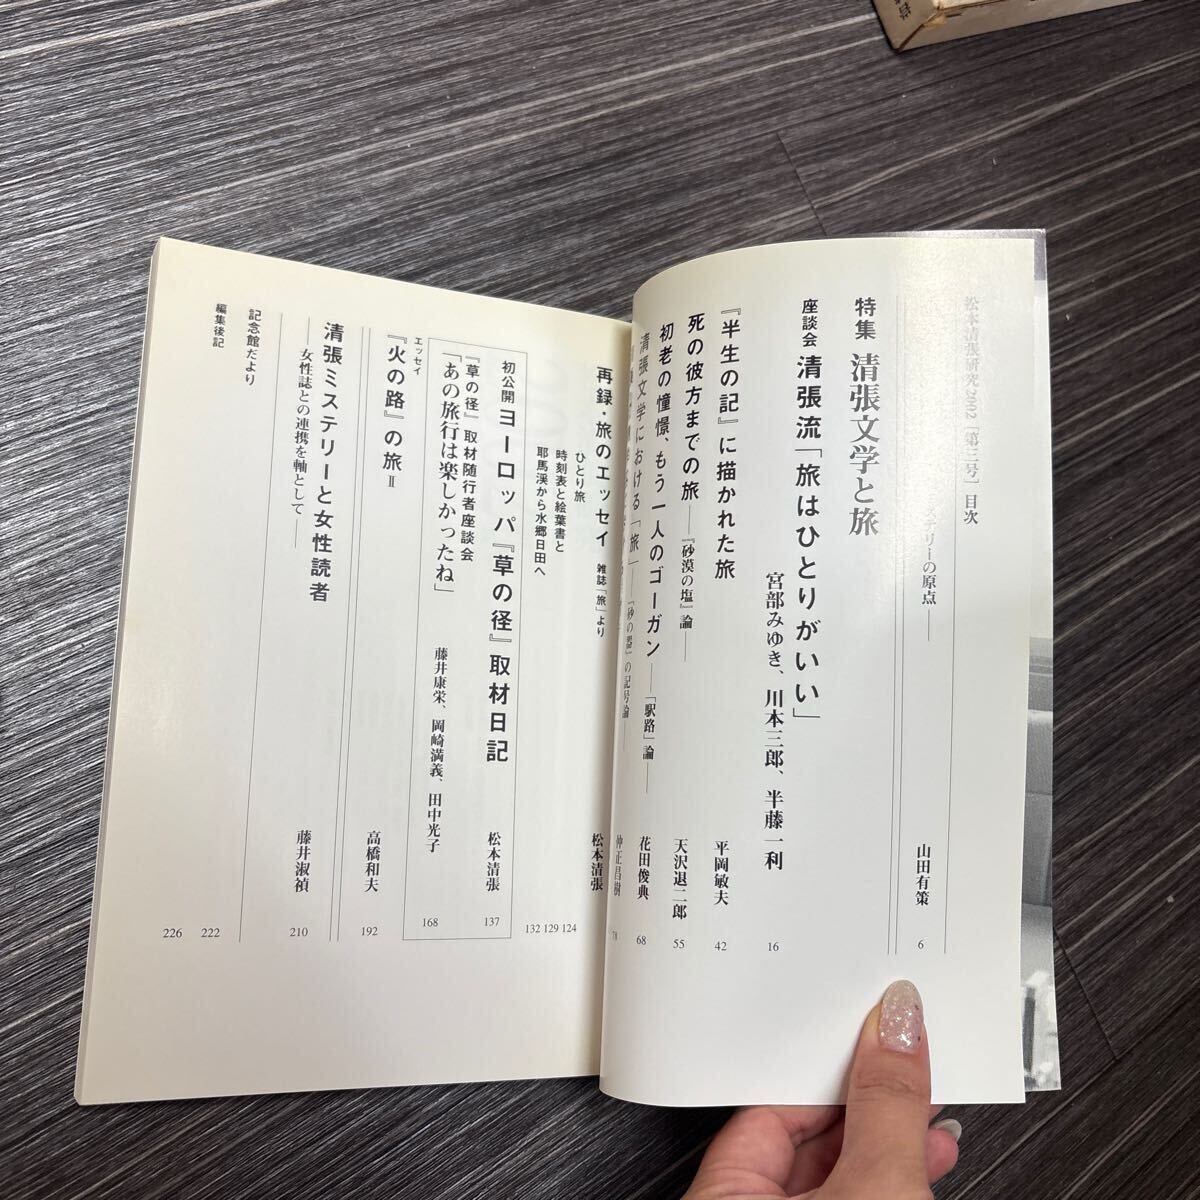 松本清張研究2002［第三号］目次
ミステリーの原点――
山田有策
6
特集 清張文学と旅
座談会 清張流「旅はひとりがいい」
宮部みゆき、川本三郎、半藤一利
16
『半生の記』に描かれた旅
平岡敏夫
42
死の彼方までの旅――『砂漠の塩』論――
天沢退二郎
55
初老の憧憬、もう一人のゴーガン――「駅路」論――
花田俊典
68
清張文学における「旅」――『砂の器』の記号論――
仲正昌樹
78
再録・旅のエッセイ 雑誌「旅」より
松本清張
ひとり旅
124
時刻表と絵葉書と
129
耶馬渓から水郷日田へ
132
初公開 ヨーロッパ『草の径』取材日記
松本清張
137
『草の径』取材随行者座談会
「あの旅行は楽しかったね」
藤井康栄、岡崎満義、田中光子
168
エッセイ
『火の路』の旅Ⅱ
高橋和夫
192
清張ミステリーと女性読者
――女性誌との連携を軸として――
藤井淑禎
210
記念館だより
222
編集後記
226